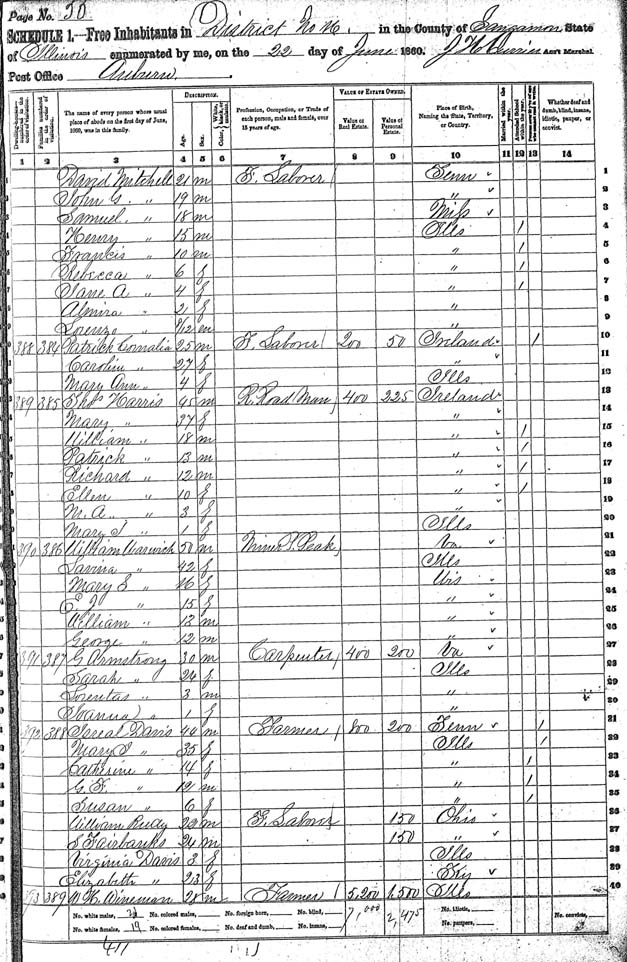 Page No. 50
SCHEDULE 1.—Free Inhabitants in District No 16 in the County of Sangamon State
of Illinois enumerated by me, on the 22 day of June 1860. Ass't Marshal.
Post Office Auburn
Dwelling-houses— numbered in the order of visitation.
Families numbered in the order of visitation.
The name of every person whose usual place of abode on the first day of June, 1860, was in this family.
DESCRIPTION.
Age. Sex. Color,
Profession, Occupation, or Trade of each person, male and female, over 15 years of age.
VALUE OF ESTATE OWNED.
Value of Real Estate. Value of Personal Estate.
Place of Birth, Naming the State, Territory, or Country.
Married within the year. Attended School within the year.
Whether deaf and dumb, blind, insane, idiotic, pauper, or convict.
1 2 3 4 5 6 7 8 9 10 11 12 13 14
David Mitchell 21 m F. Laborer / Tenn 1
John G. " 19 m " 2
Samuel " 18 m Miss 3
Henry " 15 m Ills / 4
Francis " 10 m " / 5
Rebecca " 6 f " / 6
Jane A " 4 f " / 7
Almira " 2 f " 8
Lorenzo " 9/12 m " 9
388 384 Patrick Cornalia 25 m F. Laborer / 200 50 Ireland / 10
Carolin " 27 f " 11
Mary Ann " 4 f Ills 12
389 385 Thos Harris 45 m R. Road Man / 400 225 Ireland 13
Mary " 37 f " 14
William " 18 m " / 15
Patrick " 13 m " / 16
Richard " 12 m " / 17
Ellen " 10 f " / 18
M. A. " 3 f " 19
Mary J " 1 f Ills 20
390 386 William Warwick 50 m Va 21
Lavina " 42 f Ills 22
Mary E " 16 f Wis 23
E. J " 15 f " 24
William " 13 m " 25
George " 12 m " 26
391 387 G Armstrong 30 m Carpenter / 400 200 Va 27
Sarah " 24 f Ills 28
Lorentas " 3 m " 29
Joanna " 1 f " 30
392 388 Isreal Davis 40 m Farmer / 800 200 Tenn / 31
Mary J " 35 f Ills / 32
Catherine " 14 f " / 33
G. F. " 12 m " / 34
Susan " 6 f " / 35
William Rudy 22 m F. Laborer / 150 Ohio 36
S Fairbanks 24 m 150 " 37
Virginia Davis 3 f Ills 38
Elizabeth " 23 f Ky 39
393 389 W. H. Wineman 28 m Farmer / 5,200 1,500 Ills 40
No. white males, No. colored males, No. foreign born, No. blind, 7,000 2,475 No. idiotic, No. convicts,
No. white females, 19 No. colored females, No. deaf and dumb, No. insane, No. paupers,